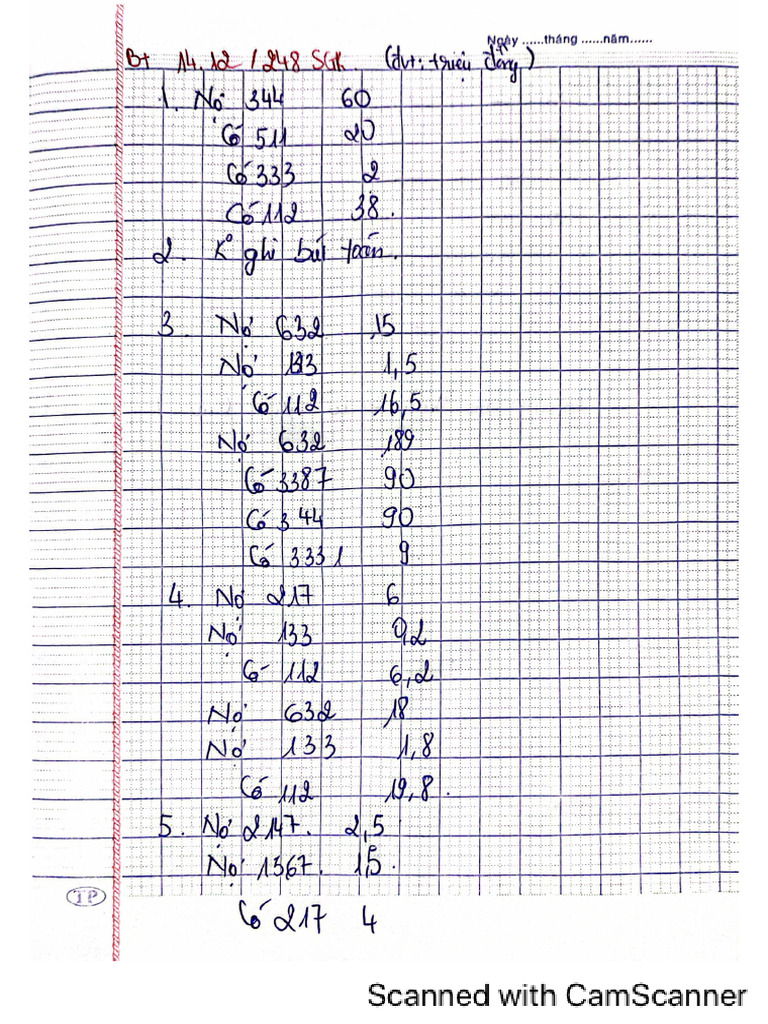 Ngày ......tháng ......năm......
Bt 14.12 / 248 SGK. (đvt: triệu đồng)
1. Nợ 344 60
Có 511 20
Có 333 2
Có 112 38.
2. K° ghi bút toán.
3. Nợ 632 15
Nợ 133 1,5
Có 112 16,5
Nợ 632 189
Có 3387 90
Có 344 90
Có 3331 9
4. Nợ 217 6
Nợ 133 0,2
Có 112 6,2
Nợ 632 18
Nợ 133 1,8
Có 112 19,8.
5. Nợ 2147. 2,5
Nợ 1367. 1,5.
Có 217 4
TP
Scanned with CamScanner